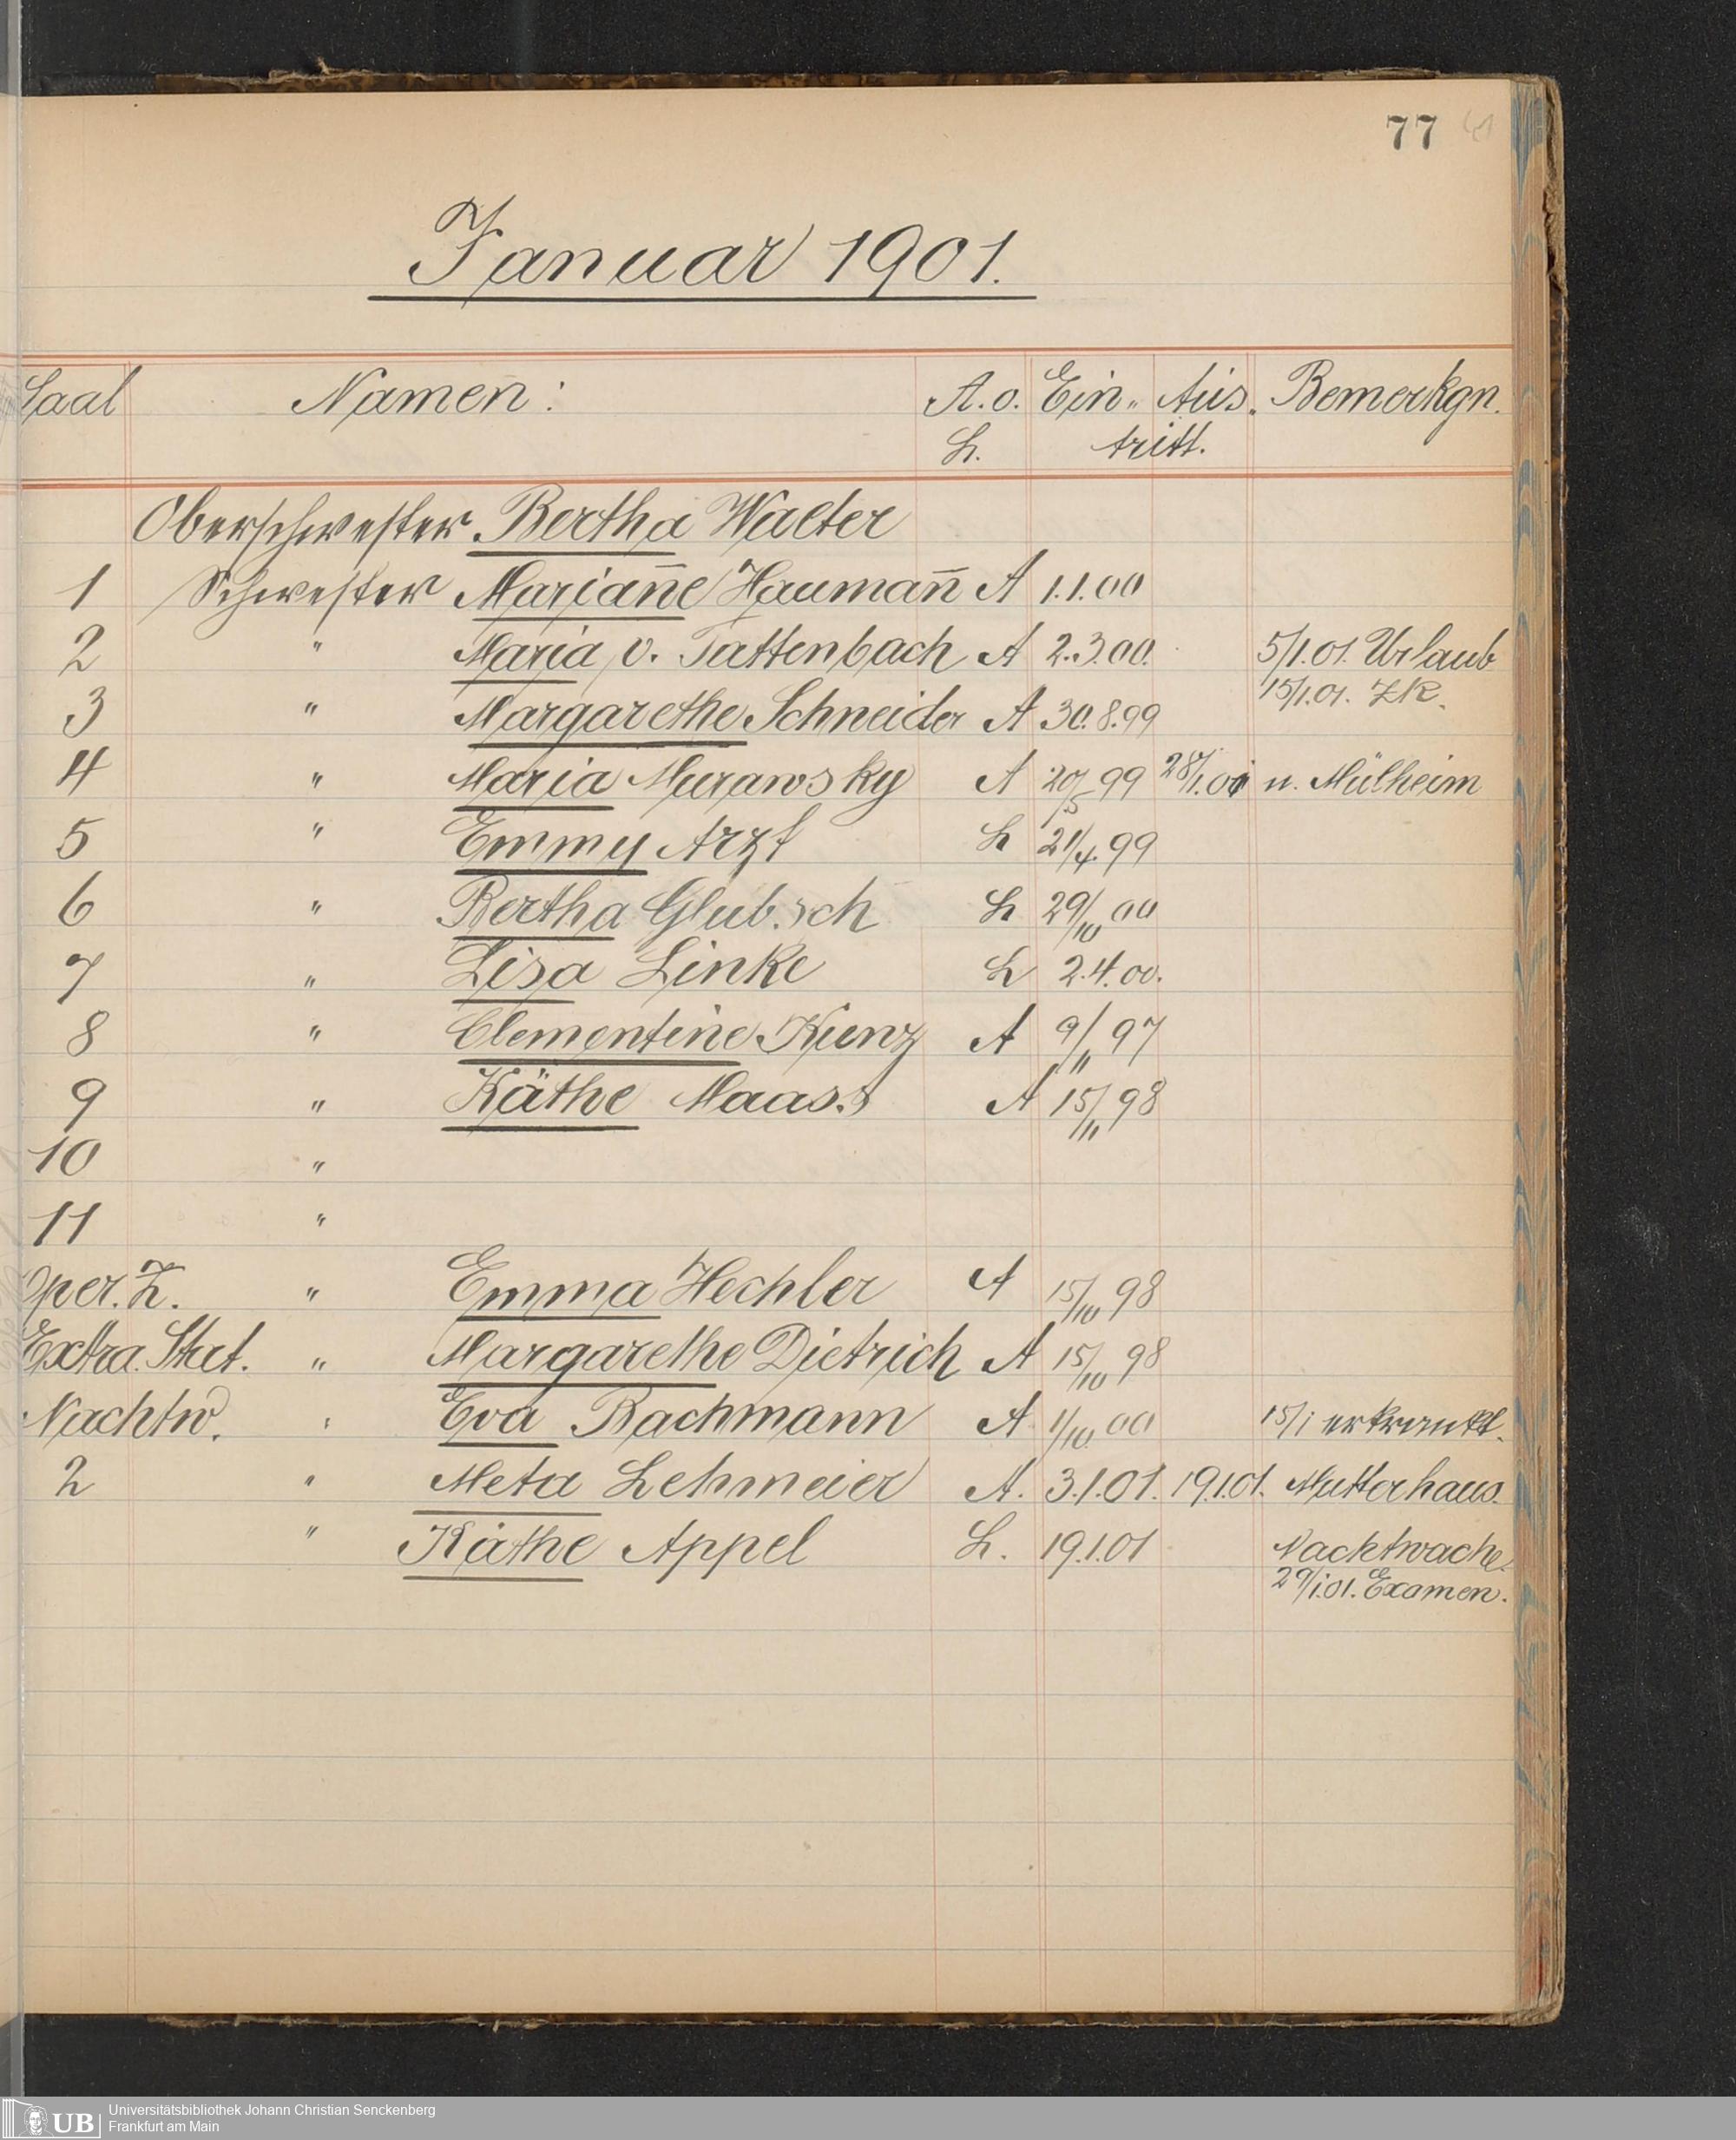 77
Januar 1901.
Saal Namen: A. o. L. Ein- Aus- tritt. Bemerkgn.
Oberschwester Bertha Walter
1 Schwester Marian̄e Hauman̄ A 1.1.00
2 " Maria v. Tattenbach A 2.3.00. 5/1.01. Urlaub
15/1.01. ZK.
3 " Margarethe Schneider A 30.8.99
4 " Maria Murawsky A 20/5 99 28/1.01 n. Mülheim
5 " Emmy Arzt L 21/4.99
6 " Bertha Glubsch L 29/10 00
7 " Lisa Linke L 2.4.00.
8 " Clementine Kunz A 9/11 97
9 " Käthe Maass A 15/11 98
10 "
11 "
Oper. Z. " Emma Hechler A 15/10 98
Extra. Stat. " Margarethe Dietrich A 15/10 98
Nachtw. " Eva Bachmann A 1/10.00 15/1 erkrankt.
2 " Meta Lehmeier A. 3.1.01. 19.1.01. Mutterhaus.
" Käthe Appel L. 19.1.01 Nachtwache.
29/1.01. Examen.
UB Universitätsbibliothek Johann Christian Senckenberg
Frankfurt am Main